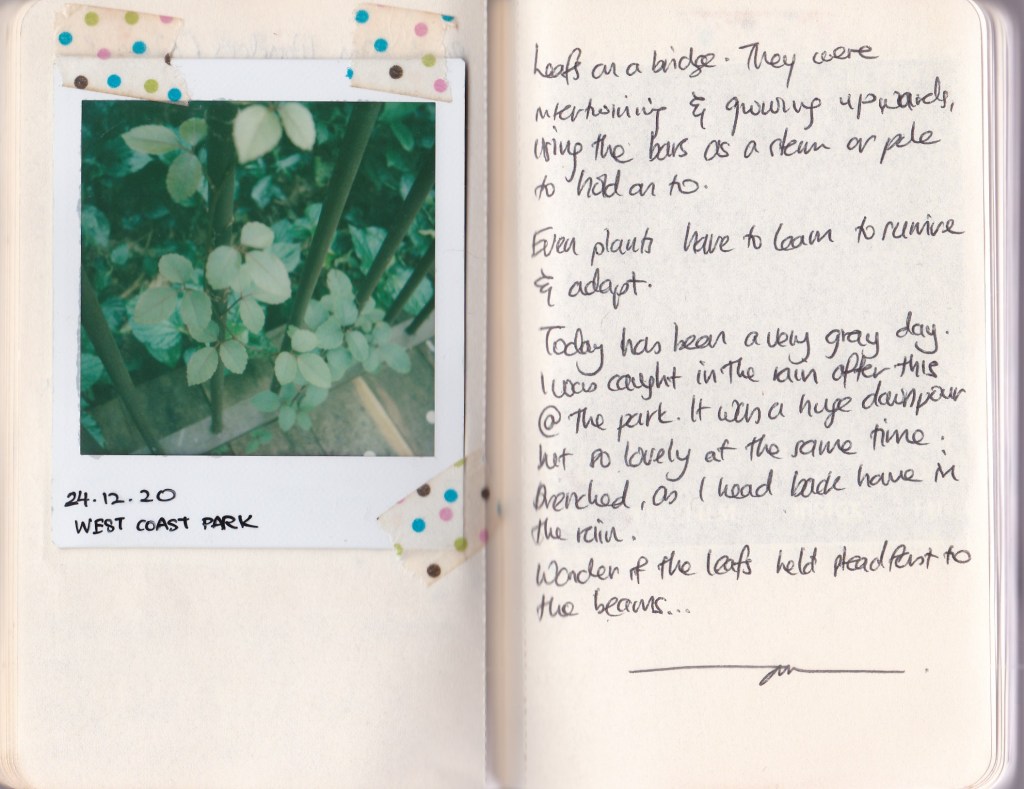 24.12.20
WEST COAST PARK
Leafs on a bridge. They were
intertwining & growing upwards,
using the bars as a stem or pole
to hold on to.
Even plants have to learn to survive
& adapt.
Today has been a very gray day.
I was caught in the rain after this
@ the park. It was a huge downpour
but so lovely at the same time.
Drenched, as I head back home in
the rain.
Wonder if the leafs held steadfast to
the beams...